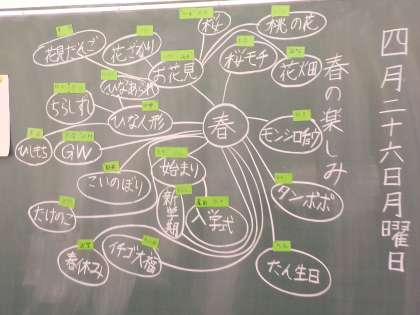 四月二十六日月曜日
春の楽しみ
春
桜
桃の花
花畑
桜モチ
お花見
花ざかり
花見だんご
ひなあられ
ちらしずし
ひな人形
ひしもち
GW
こいのぼり
たけのこ
始まり
新学期
入学式
春休み
イチゴ大福
モンシロチョウ
タンポポ
たん生日